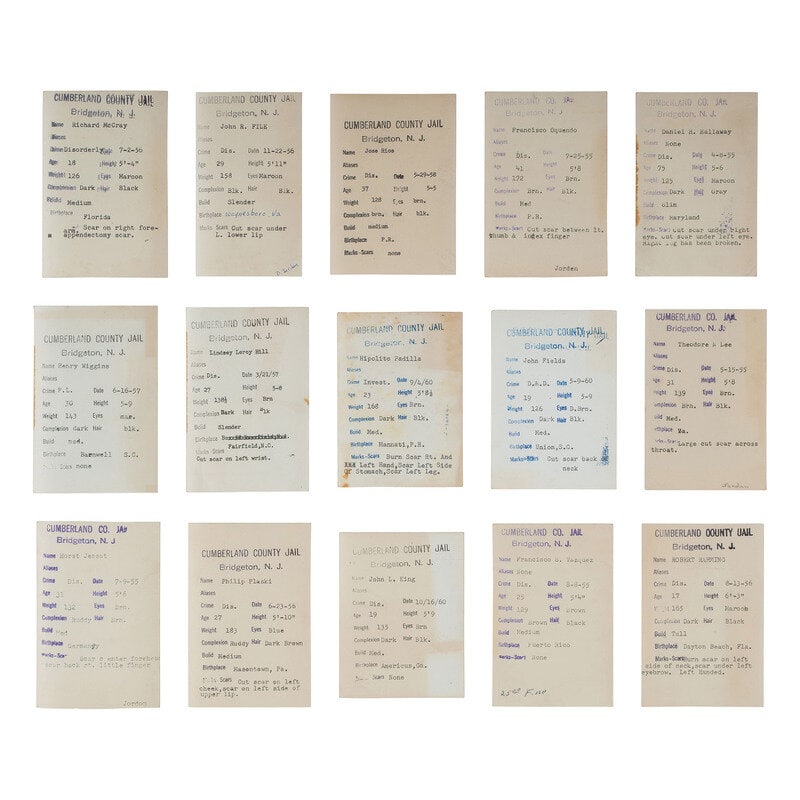 CUMBERLAND COUNTY JAIL
Bridgeton, N. J.
Name Richard McGray
Aliases
Crime Disorderly Date 7-2-56
Age 18 Height 5'-4"
Weight 126 Eyes Maroon
Complexion Dark Hair Black
Build Medium
Birthplace
Florida
Scar on right fore-
arm.
appendectomy scar.
CUMBERLAND COUNTY JAIL
Bridgeton, N. J.
Name John R. FILE
Aliases
Crime Dis. Date 11-22-56
Age 29 Height 5'11"
Weight 158 Eyes Maroon
Complexion Blk. Hair Blk.
Build Slender
Birthplace Va
Marks-Scars Cut scar under
L. lower lip
CUMBERLAND COUNTY JAIL
Bridgeton, N. J.
Name Jose Rios
Aliases
Crime Dis. Date 5-29-58
Age 37 Height 5-5
Weight 128 Eyes brn.
Complexion brn. Hair blk.
Build medium
Birthplace P.R.
Marks-Scars none
CUMBERLAND CO. JAIL
Bridgeton, N. J.
Name Francisco Oquendo
Aliases
Crime Dis. Date 7-25-55
Age 41 Height 5'8
Weight 172 Eyes Brn.
Complexion Brn. Hair Blk.
Build Med
Birthplace P.R.
Marks-Scars Cut scar between lt.
thumb & index finger
Jorden
CUMBERLAND CO. JAIL
Bridgeton, N. J.
Name Daniel H. Hallaway
Aliases None
Crime Dis. Date 4-8-55
Age 75 Height 5-6
Weight 125 Eyes Maroon
Complexion Dark Hair Gray
Build Slim
Birthplace Maryland
Marks-Scars Cut scar under right
eye. Cut scar under left eye.
Right leg has been broken.
CUMBERLAND COUNTY JAIL
Bridgeton, N. J.
Name Henry Wiggins
Aliases
Crime F.L. Date 6-16-57
Age 30 Height 5-9
Weight 143 Eyes mar.
Complexion dark Hair blk.
Build med.
Birthplace Barnwell S.C.
Scars none
CUMBERLAND COUNTY JAIL
Bridgeton, N. J.
Name Lindsey Leroy Hill
Aliases
Crime Dis. Date 3/21/57
Age 27 Height 5-8
Weight 138½ Eyes Brn
Complexion Dark Hair Blk
Build Slender
Birthplace
Fairfield,N.C.
Marks-Scars
Cut scar on left wrist.
CUMBERLAND COUNTY JAIL
Bridgeton, N. J.
Name Hipolito Padilla
Aliases
Crime Invest. Date 9/4/60
Age 23 Height 5'8½
Weight 168 Eyes Brn.
Complexion Dark Hair Blk.
Build Med.
Birthplace Hannati,P.R.
Marks-Scars Burn Scar Rt. And
XXX Left Hand,Scar Left Side
Of Stomach,Scar Left Leg.
CUMBERLAND COUNTY JAIL
Bridgeton, N. J.
Name John Fields
Aliases
Crime D.&D. Date 5-9-60
Age 19 Height 5-9
Weight 126 Eyes D.Brn.
Complexion Dark Hair Blk.
Build Med.
Birthplace Union,S.C.
Marks-Scars Cut scar back
neck
CUMBERLAND CO. JAIL
Bridgeton, N. J.
Name Theodore Lee
Aliases
Crime Dis. Date 5-15-55
Age 31 Height 5'8
Weight 139 Eyes Mar.
Complexion Brn. Hair Blk.
Build Med.
Birthplace Va.
Marks-Scars Large cut scar across
throat.
Jordan
CUMBERLAND CO. JAIL
Bridgeton, N. J
Name Horst
Aliases
Crime Dis. Date 7-9-55
Age 31 Height 5'8
Weight 132 Eyes Brn.
Complexion Ruddy Hair Brn.
Build Med
Birthplace Germany
Marks-Scars
Scar center forehead
scar back rt. little finger
Jordon
CUMBERLAND COUNTY JAIL
Bridgeton, N. J.
Name Philip Plaski
Aliases
Crime Dis. Date 6-23-56
Age 27 Height 5'-10"
Weight 183 Eyes Blue
Complexion Ruddy Hair Dark Brown
Build Medium
Birthplace Masontown, Pa.
Scars Cut scar on left
cheek,scar on left side of
upper lip.
CUMBERLAND COUNTY JAIL
Bridgeton, N. J.
Name John L. King
Aliases
Crime Dis. Date 10/16/60
Age 19 Height 5'9
Weight 135 Eyes Brn
Complexion Dark Hair Blk.
Build Med.
Birthplace Americus,Ga.
Scars None
CUMBERLAND CO. JAIL
Bridgeton, N. J.
Name Francisco S. Vazquez
Aliases None
Crime Dis. Date 8-8-55
Age 25 Height 5'4"
Weight 129 Eyes Brown
Complexion Brown Hair Black
Build Medium
Birthplace Puerto Rico
Marks-Scars None
CUMBERLAND COUNTY JAIL
Bridgeton, N. J.
Name ROBERT HAMMING
Aliases
Crime Dis. Date 6-13-56
Age 17 Height 6'-3"
165 Eyes Maroon
Complexion Dark Hair Black
Build Tall
Birthplace Dayton Beach, Fla.
Marks-Scars Burn scar on left
side of neck,scar under left
eyebrow. Left Handed.